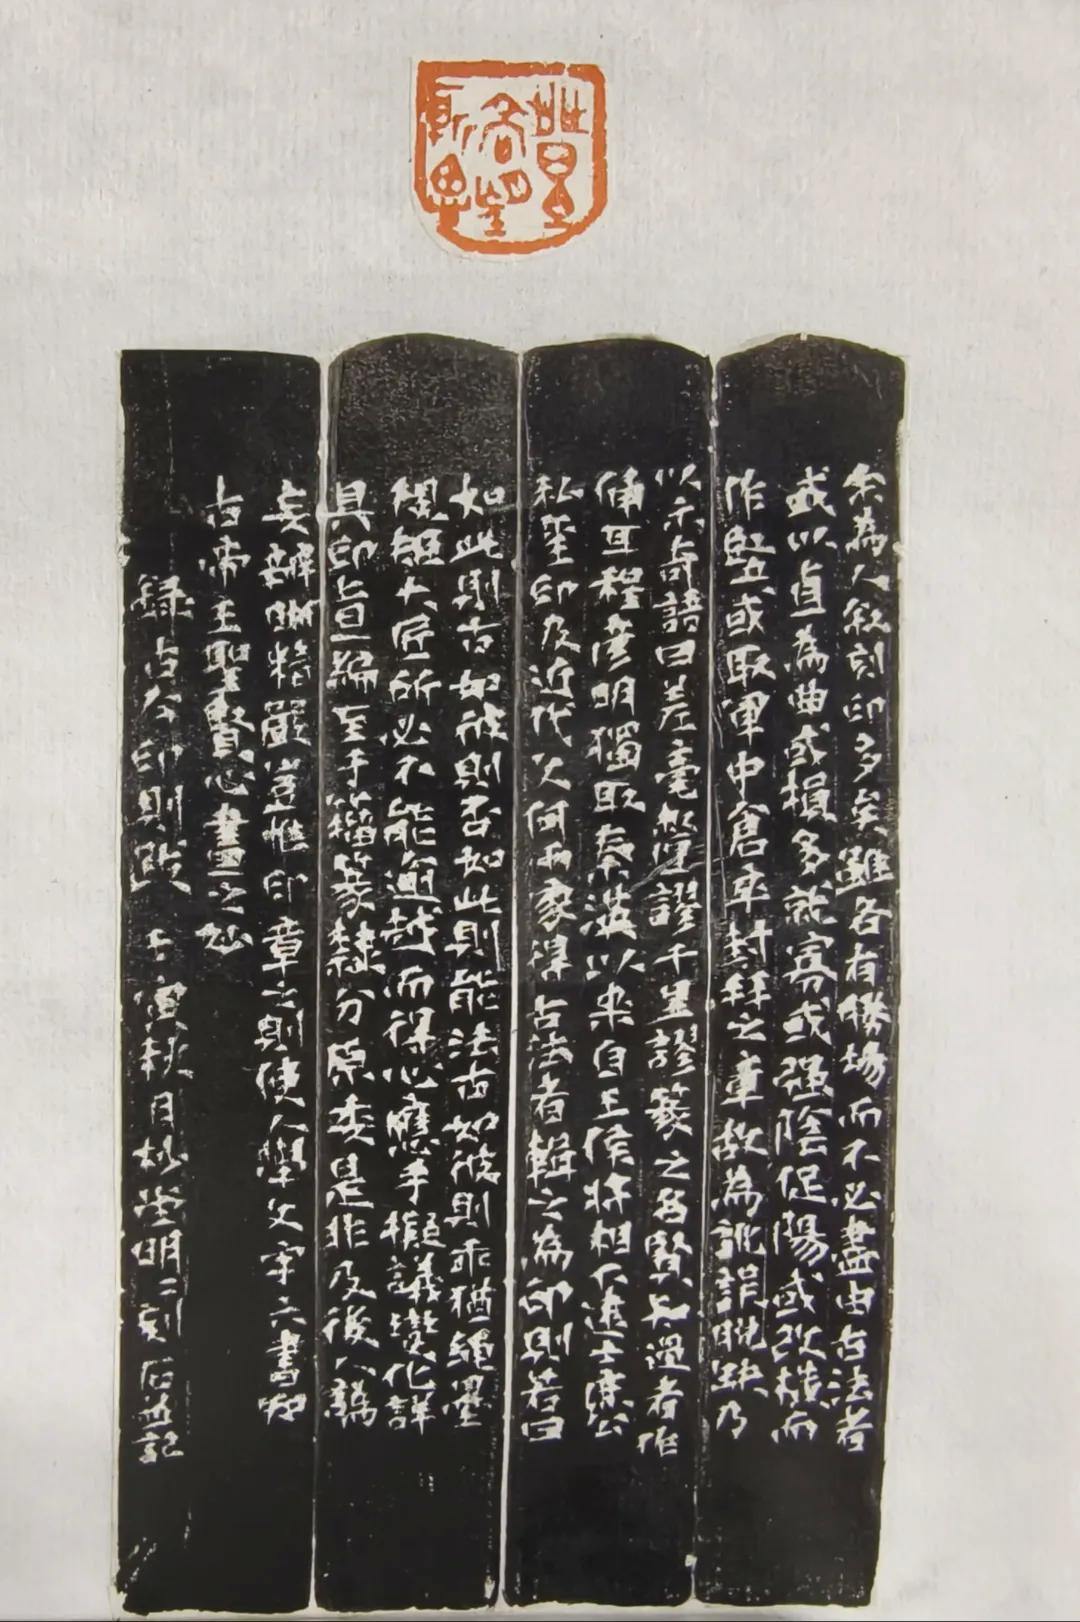 余為人敘刻印多矣雖各有勝場而不必盡由古法者
或以直為曲或損多就寡或强陰促陽或改橫而
作竪或取軍中倉卒封拜之章故為訛誤脫缺乃
以示奇語曰差毫釐謬千里謬篆之名賢知過者作
俑耳程彦明獨取秦漢以来自王侯將相下逮士庶公
私璽印及近代文何兩家得古法者輯之為印則若曰
如此則古如彼則否如此則能法古如彼則乖猶繩墨
規矩大匠所必不能逾越而得心應手擬議變化詳
具印旨一編至于籀篆隸分原委是非及後人譌
妄辭晰精嚴豈惟印章之則使人學文字六書知
古帝王聖賢心畫之妙
錄古今印則跋 壬寅秋月松堂明二刻石並記